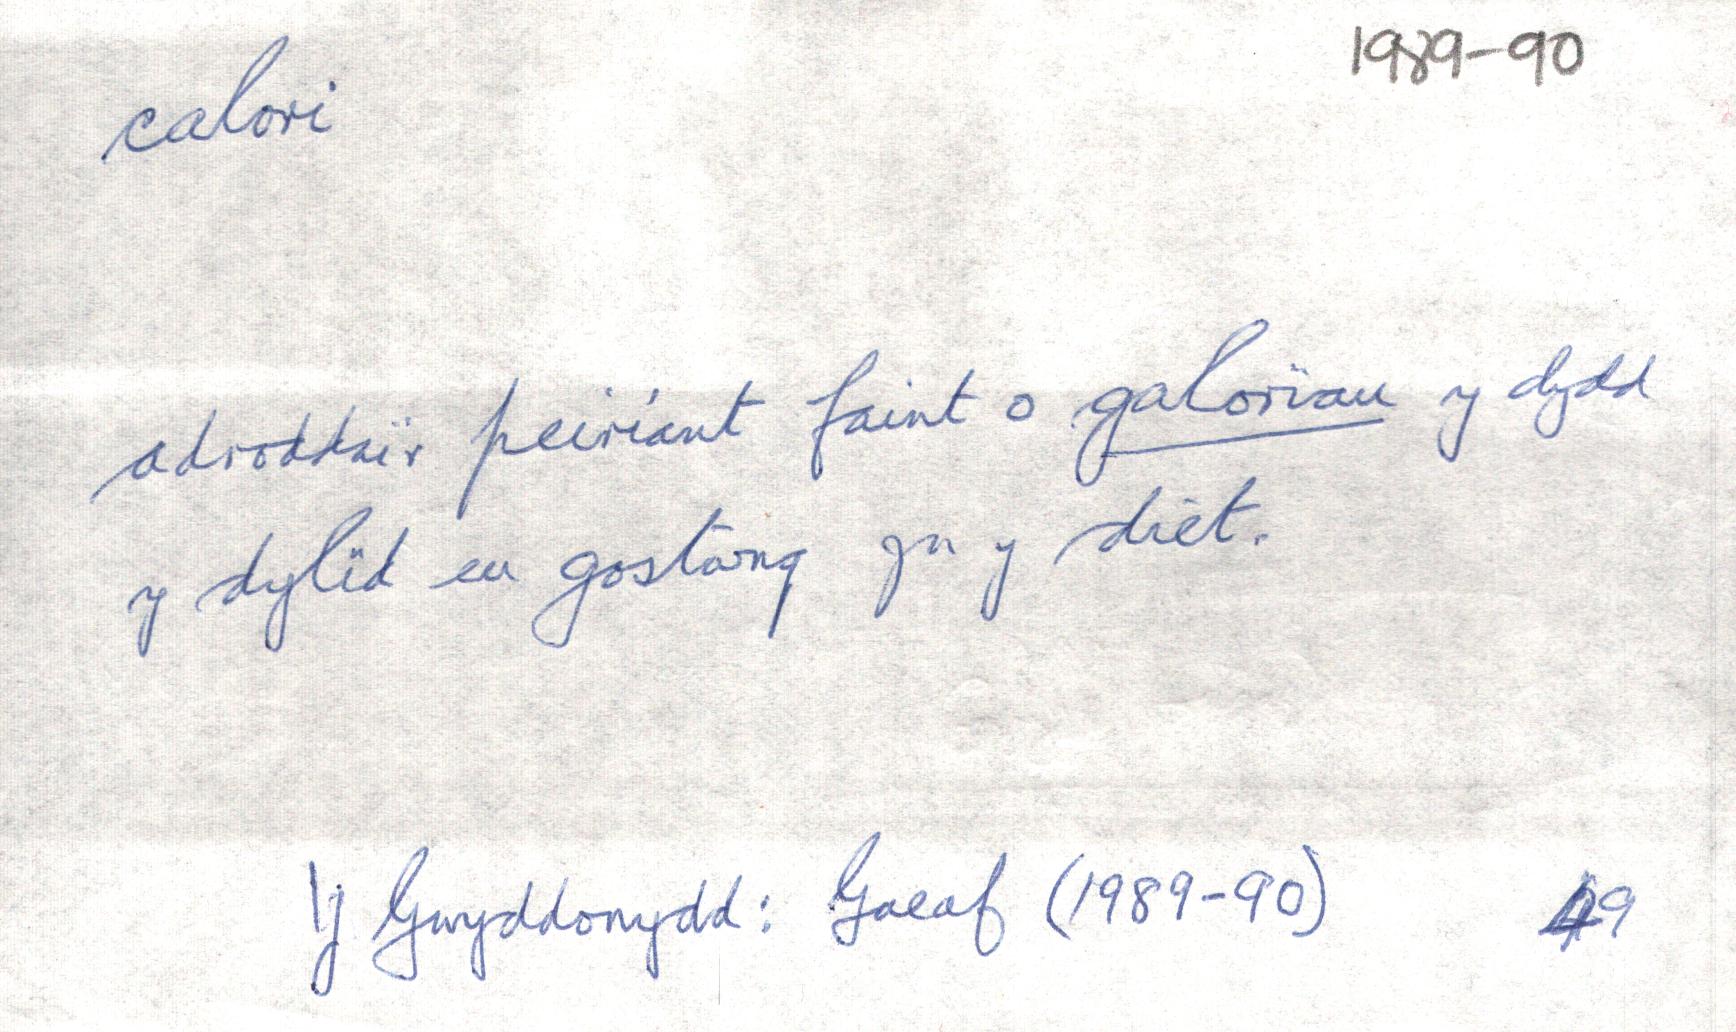 1989-90
calori
adrodda'r peiriant faint o galorïau y dydd
y dylid eu gostwng yn y diet.
Y Gwyddonydd: Gaeaf (1989-90) 49